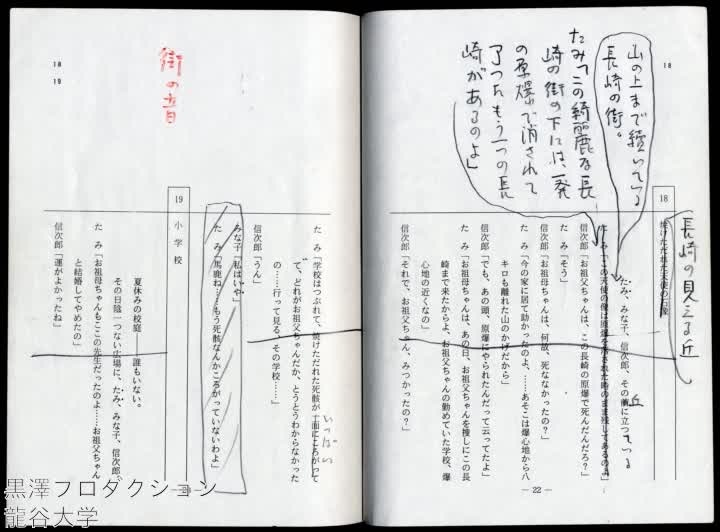 18
山の上まで続いている
長崎の街。
たみ「この綺麗な長
崎の街の下には、一発
の原爆で消されて
了った、もう一つの長
崎があるのよ」
18
長崎の見える丘
焼けただれた天使の石像
たみ、みな子、信次郎、その前に立つ
丘
ている
たみ「この天使の像は原爆を落された時のまま残してあるのよ」
信次郎「お祖父ちゃんは、この長崎の原爆で死んだんだろ?」
たみ「そう」
信次郎「お祖母ちゃんは、何故、死ななかったの?」
たみ「今の家に居て助かったのよ、……あそこは爆心地から八
キロも離れた山のかげだから」
信次郎「でも、あの頭、原爆にやられたんだって云ってたよ」
たみ「お祖母ちゃんは、あの日、お祖父ちゃんを捜しにこの長
崎まで来たからよ、お祖父ちゃんの勤めていた学校、爆
心地の近くなの」
信次郎「それで、お祖父ちゃん、みつかったの?」
— 22 —
18
19
街の音
たみ「学校はつぶれて、焼けただれた死骸が一面にころがって
いっぱい
て、どれがお祖父ちゃんだか、とうとうわからなかった
の……行って見る、その学校……」
信次郎「うん」
みな子「私はいや」
たみ「馬鹿ね……もう死骸なんかころがっていないわよ」
19
小学校
夏休みの校庭——誰もいない。
その日陰一つない広場に、たみ、みな子、信次郎。
たみ「お祖母ちゃんもここの先生だったのよ……お祖父ちゃん
と結婚してやめたの」
信次郎「運がよかったね」
黒澤プロダクション
龍谷大学